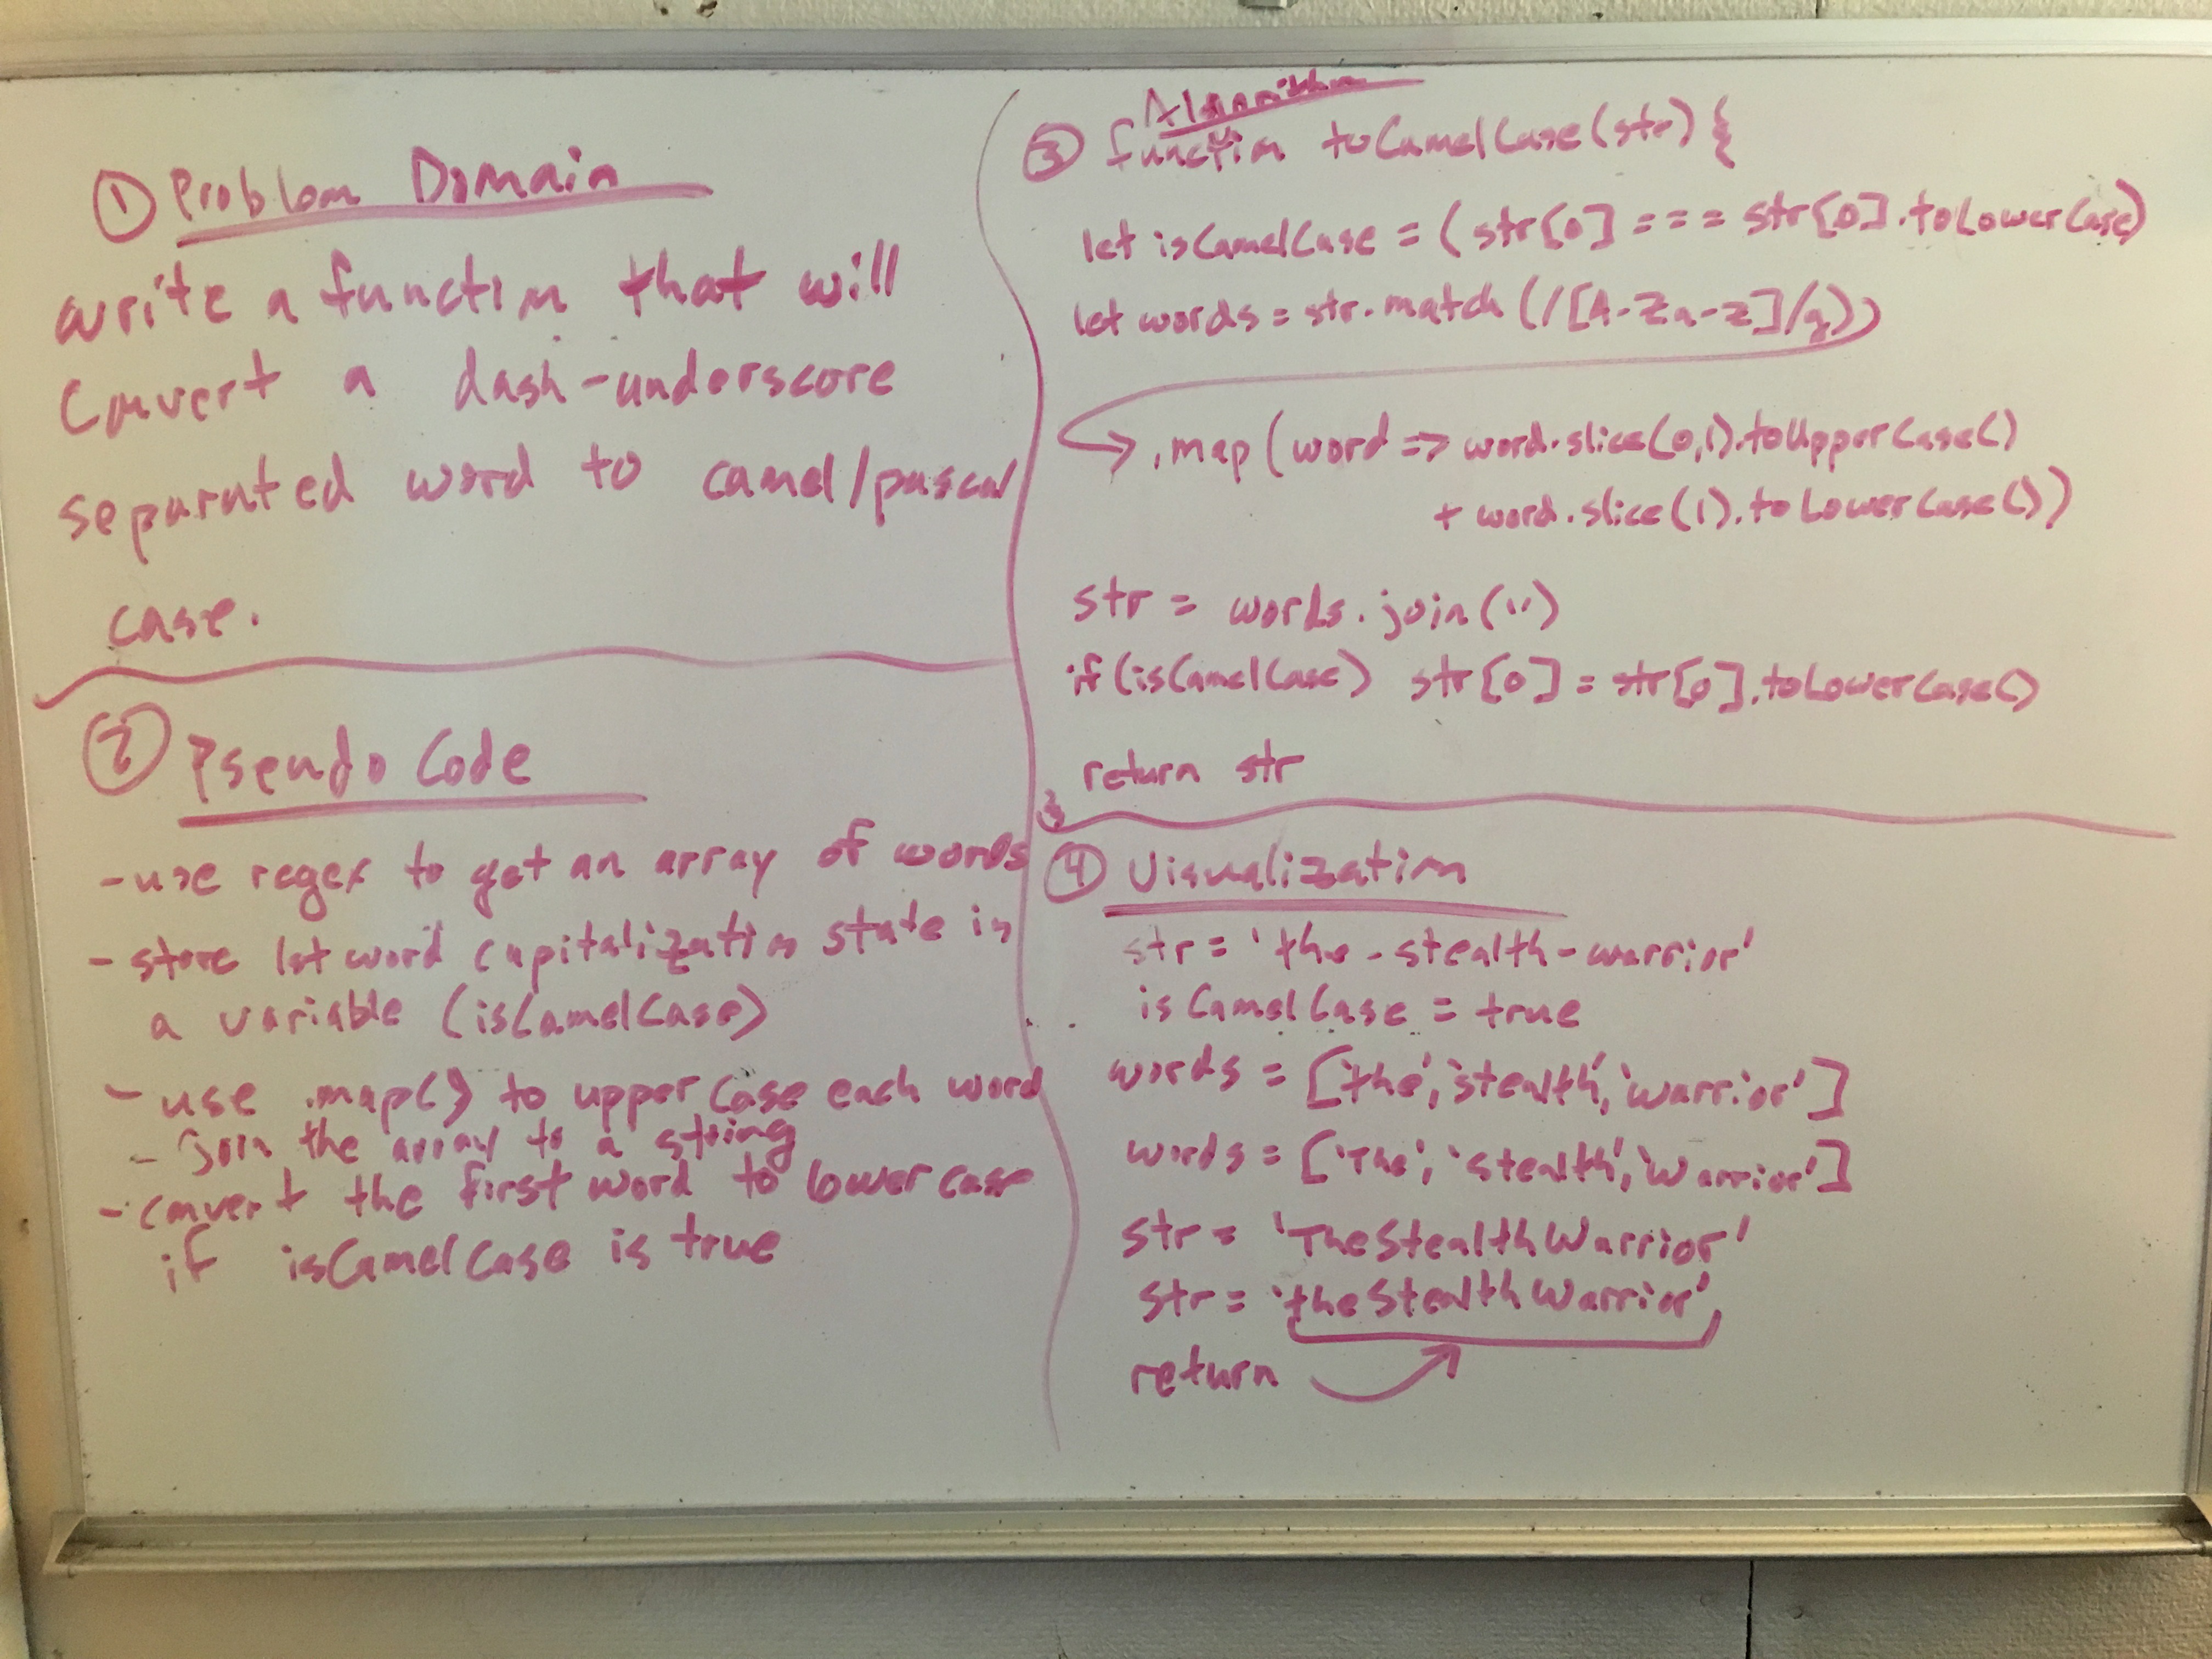 ① Problem Domain
write a function that will
convert a dash-underscore
separated word to camel/pascal
case.
② Pseudo Code
- use regex to get an array of words
- store 1st word capitalization state in
a variable (isCamelCase)
- use .map() to upper case each word
- join the array to a string
- convert the first word to lower case
if isCamelCase is true
Algorithm
③ function toCamelCase(str) {
let isCamelCase = (str[0] === str[0].toLowerCase)
let words = str.match(/[A-Za-z]/g))
.map(word => word.slice(0,1).toUpperCase()
+ word.slice(1).toLowerCase())
str = words.join('')
if (isCamelCase) str[0] = str[0].toLowerCase()
return str
}
④ Visualization
str = 'the-stealth-warrior'
isCamelCase = true
words = ['the', 'stealth', 'warrior']
words = ['The', 'Stealth', 'Warrior']
str = 'TheStealthWarrior'
str = 'theStealthWarrior'
return